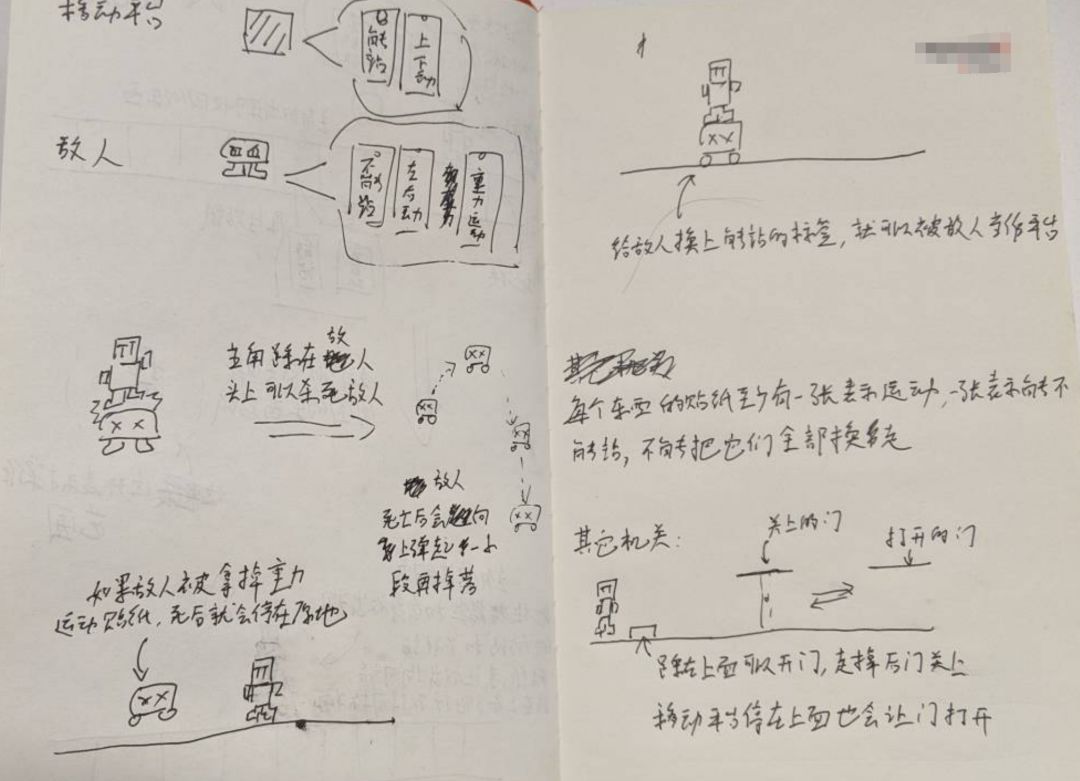 移动平台
能站
上下动
敌人
不能站
左右动
重力运动
主角踩在敌人
头上可以杀死敌人
敌人
死亡后会向
上弹起一小
段再掉落
如果敌人被拿掉重力
运动贴纸,死后就会停在原地
给敌人换上能站的标签,就可以被敌人当作平台
每个东西的贴纸至少有一张表示运动,一张表示能不
能站,不能把它们全部换走
其它机关:
关上的门
打开的门
踩在上面可以开门,走掉后门关上
移动平台停在上面也会让门打开